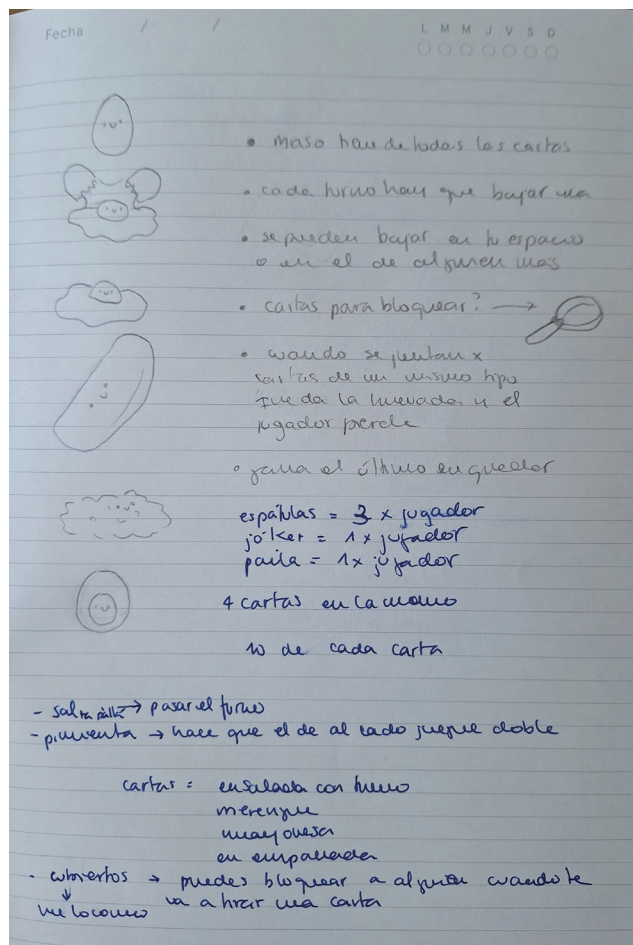 Fecha / /
L M M J V S D
• maso hay de todas las cartas
• cada turno hay que bajar una
• se pueden bajar en tu espacio
o en el de alguien mas
• cartas para bloquear? →
• cuando se juntan x
cartas de un mismo tipo
queda la huevada y el
jugador pierde
• gana el último en quedar
espátulas = 3 x jugador
jóker = 1 x jugador
paila = 1 x jugador
4 cartas en la mano
10 de cada carta
- sal → pasar el turno
- pimienta → hace que el de al lado juegue doble
cartas = ensalada con huevo
merengue
mayonesa
en empanada
- cubiertos → puedes bloquear a alguien cuando te
va a tirar una carta
↓
me lo como